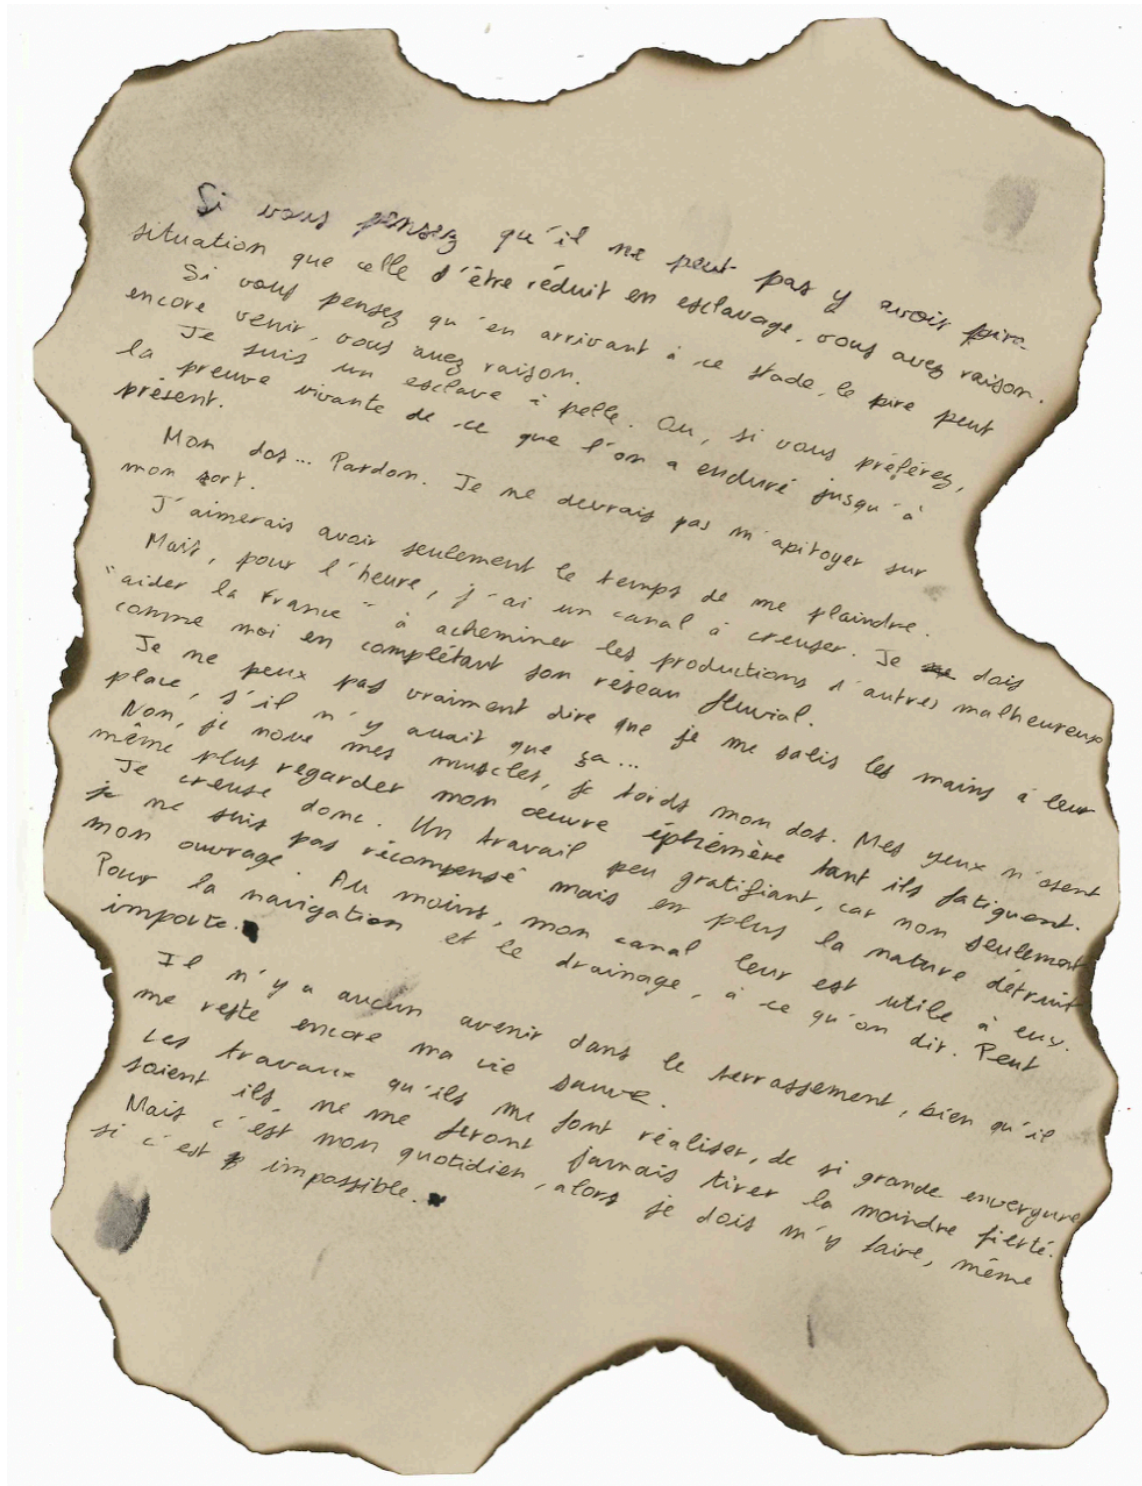 Si vous pensez qu'il ne peut pas y avoir pire
situation que celle d'être réduit en esclavage, vous avez raison.
Si vous pensez qu'en arrivant à ce stade, le pire peut
encore venir, vous avez raison.
Je suis un esclave à pelle. Ou, si vous préférez,
la preuve vivante de ce que l'on a enduré jusqu'à
présent.
Mon dos... Pardon. Je ne devrais pas m'apitoyer sur
mon sort.
J'aimerais avoir seulement le temps de me plaindre.
Mais, pour l'heure, j'ai un canal à creuser. Je dois
"aider la France" à acheminer les productions d'autres malheureux
comme moi en complétant son réseau fluvial.
Je ne peux pas vraiment dire que je me salis les mains à leur
place, s'il n'y avait que ça...
Non, je noue mes muscles, je tords mon dos. Mes yeux n'osent
même plus regarder mon œuvre éphémère tant ils fatiguent.
Je creuse donc. Un travail peu gratifiant, car non seulement
je ne suis pas récompensé mais en plus la nature détruit
mon ouvrage. Au moins, mon canal leur est utile à eux.
Pour la navigation et le drainage, à ce qu'on dit. Peut
importe.
Il n'y a aucun avenir dans le terrassement, bien qu'il
me reste encore ma vie sauve.
Les travaux qu'ils me font réaliser, de si grande envergure
soient ils, ne me feront jamais tirer la moindre fierté.
Mais c'est mon quotidien, alors je dois m'y faire, même
si c'est impossible.